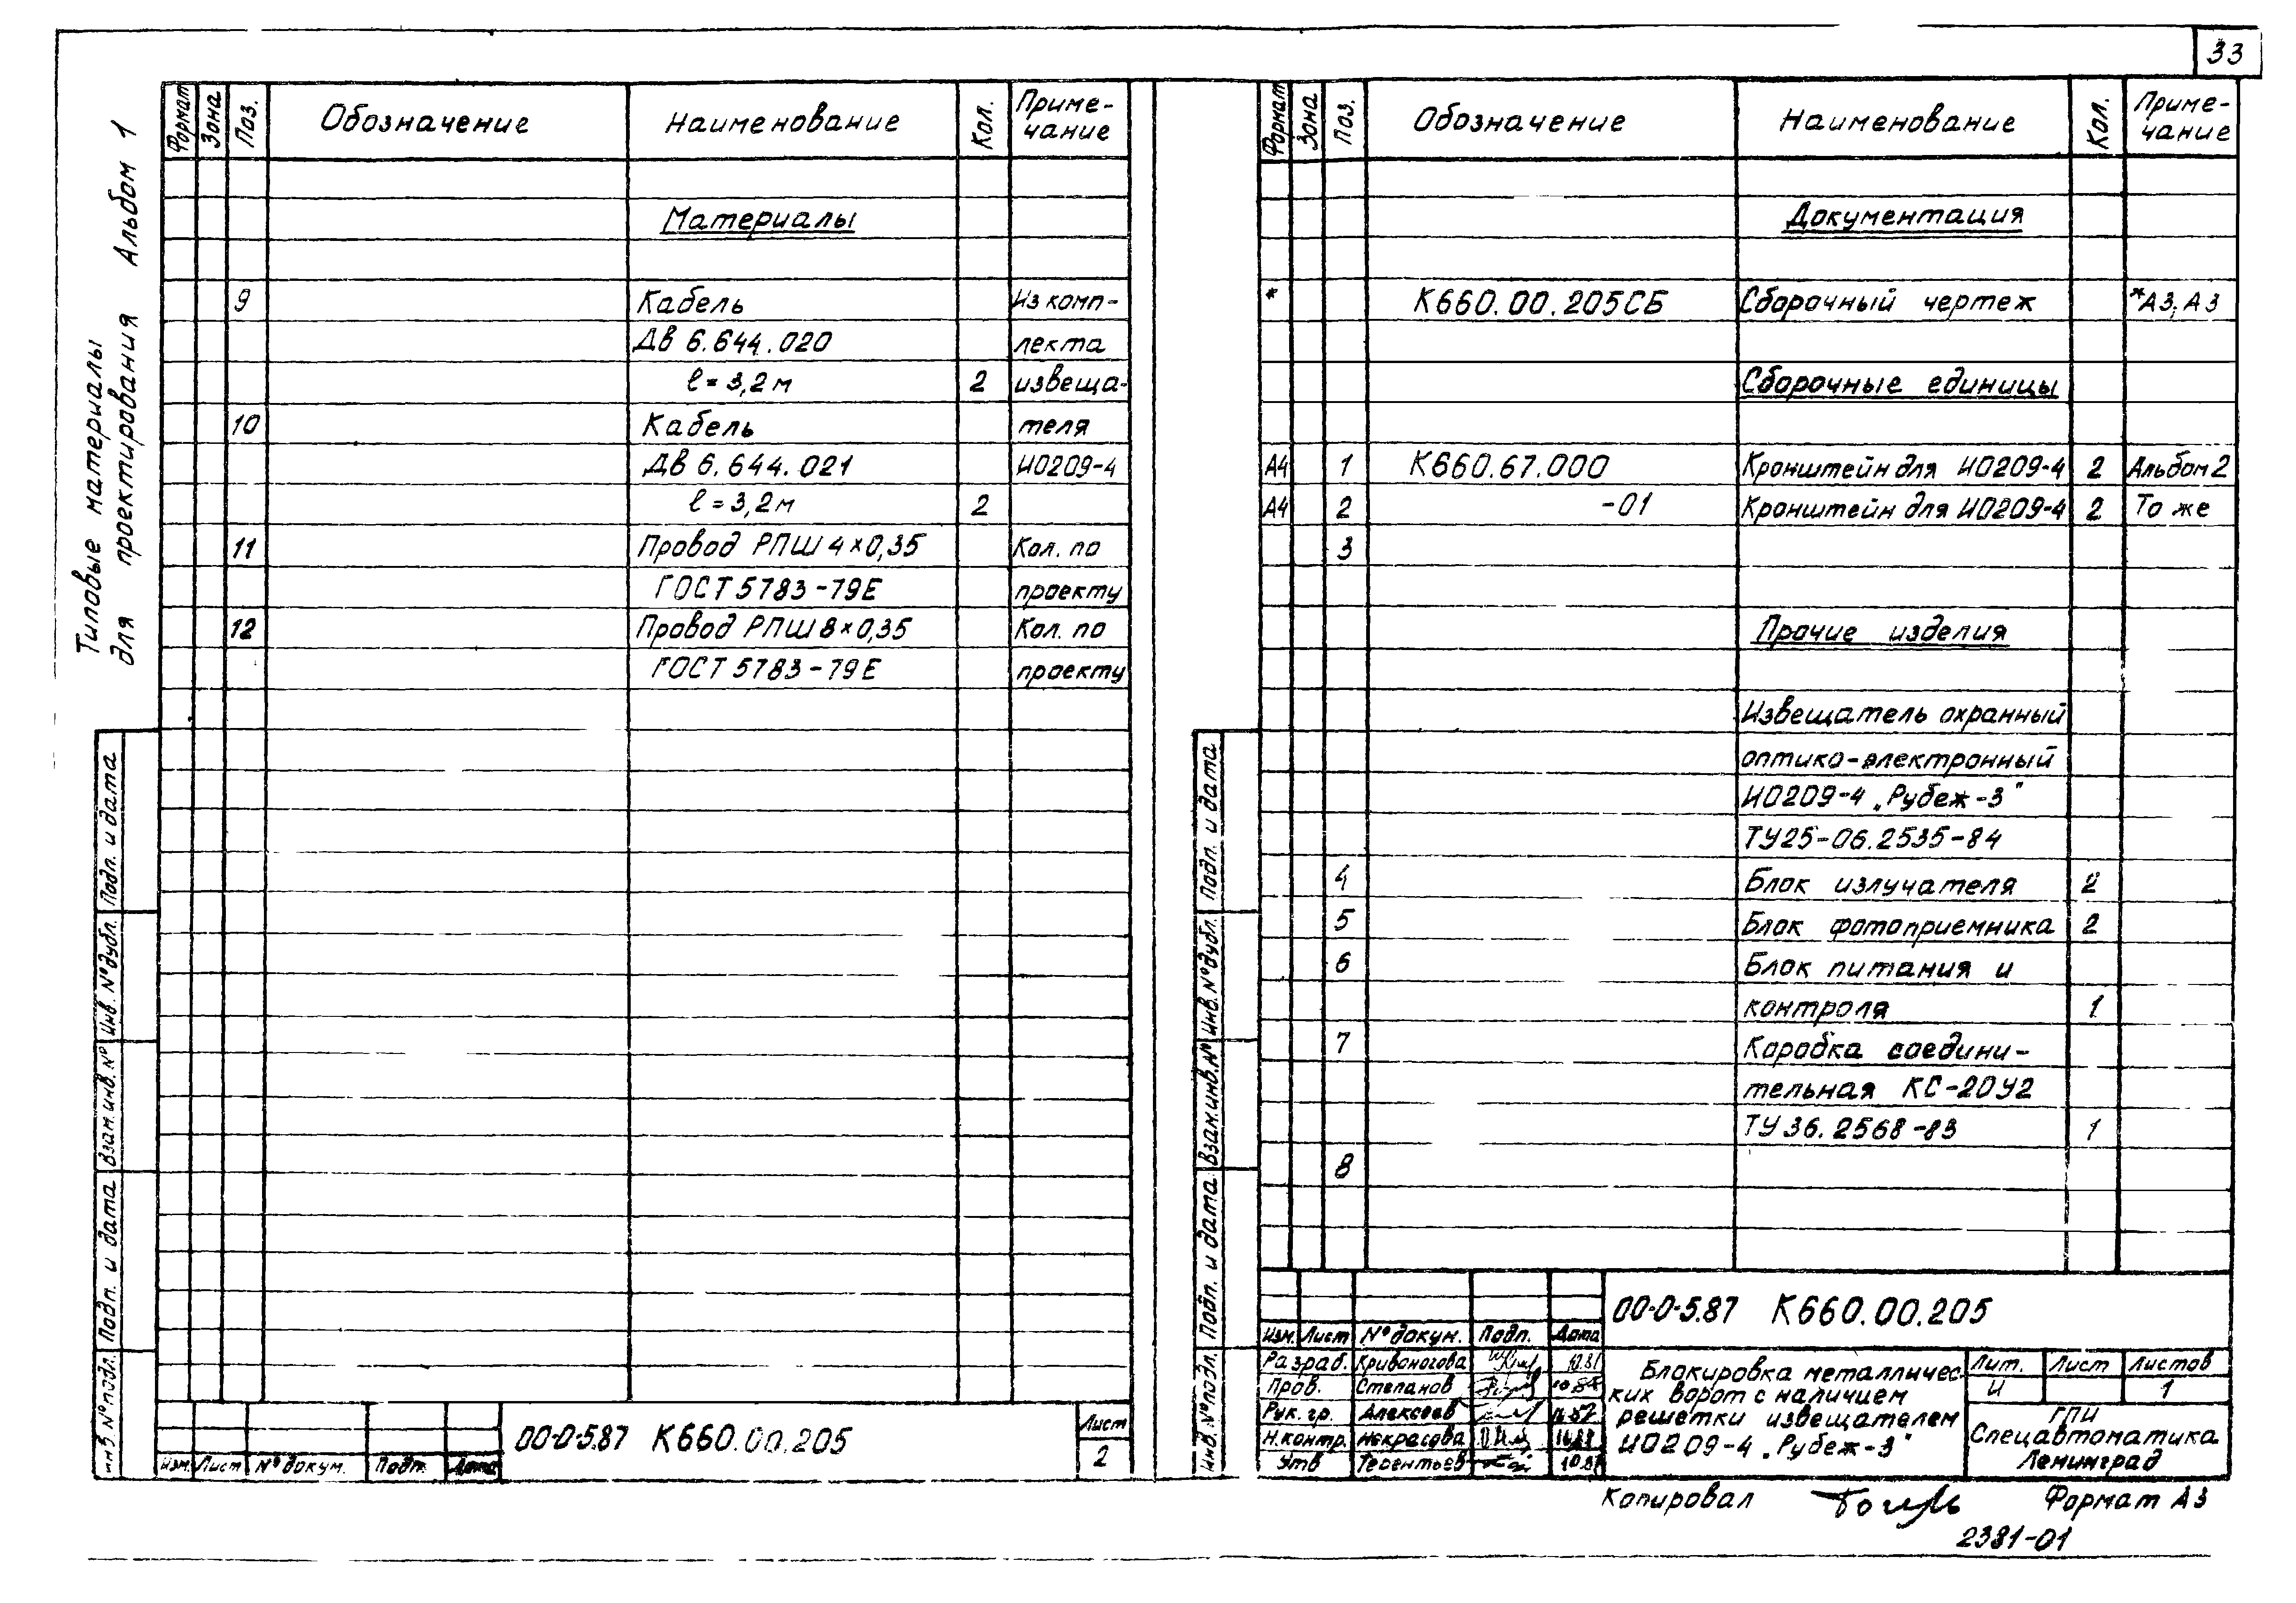 33
Типовые материалы
для проектирования Альбом 1
Формат Зона Поз. Обозначение Наименование Кол. Приме-
чание
Материалы
9 Кабель Из комп-
Дв 6.644.020 лекта
ℓ = 3,2 м 2 извеща-
10 Кабель теля
Дв 6.644.021 ИО209-4
ℓ = 3,2 м 2
11 Провод РПШ 4×0,35 Кол. по
ГОСТ 5783-79Е проекту
12 Провод РПШ 8×0,35 Кол. по
ГОСТ 5783-79Е проекту
Подп. и дата
Инв. № дубл.
Взам. инв. №
Подп. и дата
Инв. № подл.
Изм. Лист № докум. Подп. Дата
00-0-5.87 К660.00.205
Лист
2
Формат Зона Поз. Обозначение Наименование Кол. Приме-
чание
Документация
* К660.00.205СБ Сборочный чертеж *А3, А3
Сборочные единицы
А4 1 К660.67.000 Кронштейн для ИО209-4 2 Альбом 2
А4 2 -01 Кронштейн для ИО209-4 2 То же
3
Прочие изделия
Извещатель охранный
оптико-электронный
ИО209-4 „Рубеж-3"
ТУ25-06.2535-84
4 Блок излучателя 2
5 Блок фотоприемника 2
6 Блок питания и
контроля 1
7 Коробка соедини-
тельная КС-20У2
ТУ 36.2568-83 1
8
Подп. и дата
Инв. № дубл.
Взам. инв. №
Подп. и дата
Инв. № подл.
00-0-5.87 К660.00.205
Изм. Лист № докум. Подп. Дата
Разраб. Кривоногова
Пров. Степанов
Рук. гр. Алексеев
Н.контр. Некрасова
Утв Терентьев
Блокировка металличес-
ких ворот с наличием
решетки извещателем
ИО209-4 „Рубеж-3"
Лит. Лист Листов
И 1
ГПИ
Спецавтоматика
Ленинград
Копировал Формат А3
2381-01